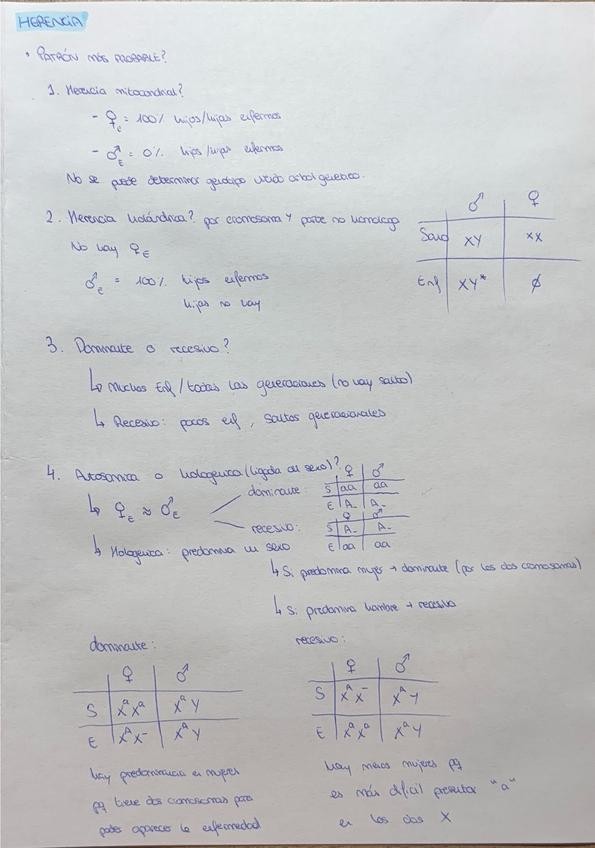 HERENCIA
• PATRÓN MÁS PROBABLE?
1. Herencia mitocondrial?
- ♀E = 100% hijos/hijas enfermos
- ♂E = 0% hijos/hijas enfermos
No se puede determinar genotipo viendo arbol genetico.
2. Herencia holándrica? por cromosoma Y parte no homologa
No hay ♀E
♂E = 100% hijos enfermos
hijas no hay
♂ ♀
Sano XY XX
Enf XY* ∅
3. Dominante o recesivo?
↳ Muchos Enf / todas las generaciones (no hay salto)
↳ Recesivo: pocos enf, saltos generacionales
4. Autosomica o hologenica (ligada al sexo)?
↳ ♀E ≈ ♂E
dominante:
♀ ♂
S aa aa
E A_ A_
recesivo:
♀ ♂
S A_ A_
E aa aa
↳ Hologenica: predomina un sexo
↳ Si predomina mujer → dominante (por los dos cromosomas)
↳ Si predomina hombre → recesivo
dominante:
♀ ♂
S XᵃXᵃ XᵃY
E XᴬX⁻ XᴬY
hay predominancia en mujeres
pq tiene dos cromosomas para
poder aparecer la enfermedad
recesivo:
♀ ♂
S XᴬX⁻ XᴬY
E XᵃXᵃ XᵃY
hay menos mujeres pq
es más dificil presentar "a"
en los dos X